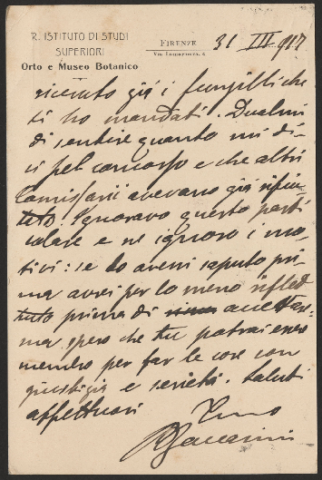 R. ISTITUTO DI STUDI
SUPERIORI
Orto e Museo Botanico
FIRENZE
31 III 917
ricevuto già i funghilli che
ti ho mandati. Duolmi
di sentire quanto mi di-
ci pel concorso e che altri
Comissarii avevano già rifiu-
tato. Ignoravo questo parti
colare e ne ignoro i mo-
tivi: se lo avessi saputo pri
ma avrei per lo meno riflet-
tuto prima di accettare
ma spero che tu potrai esser
membro per far le cose con
giustizia e serietà. Saluti
affettuosi Tuo
PBaccarini